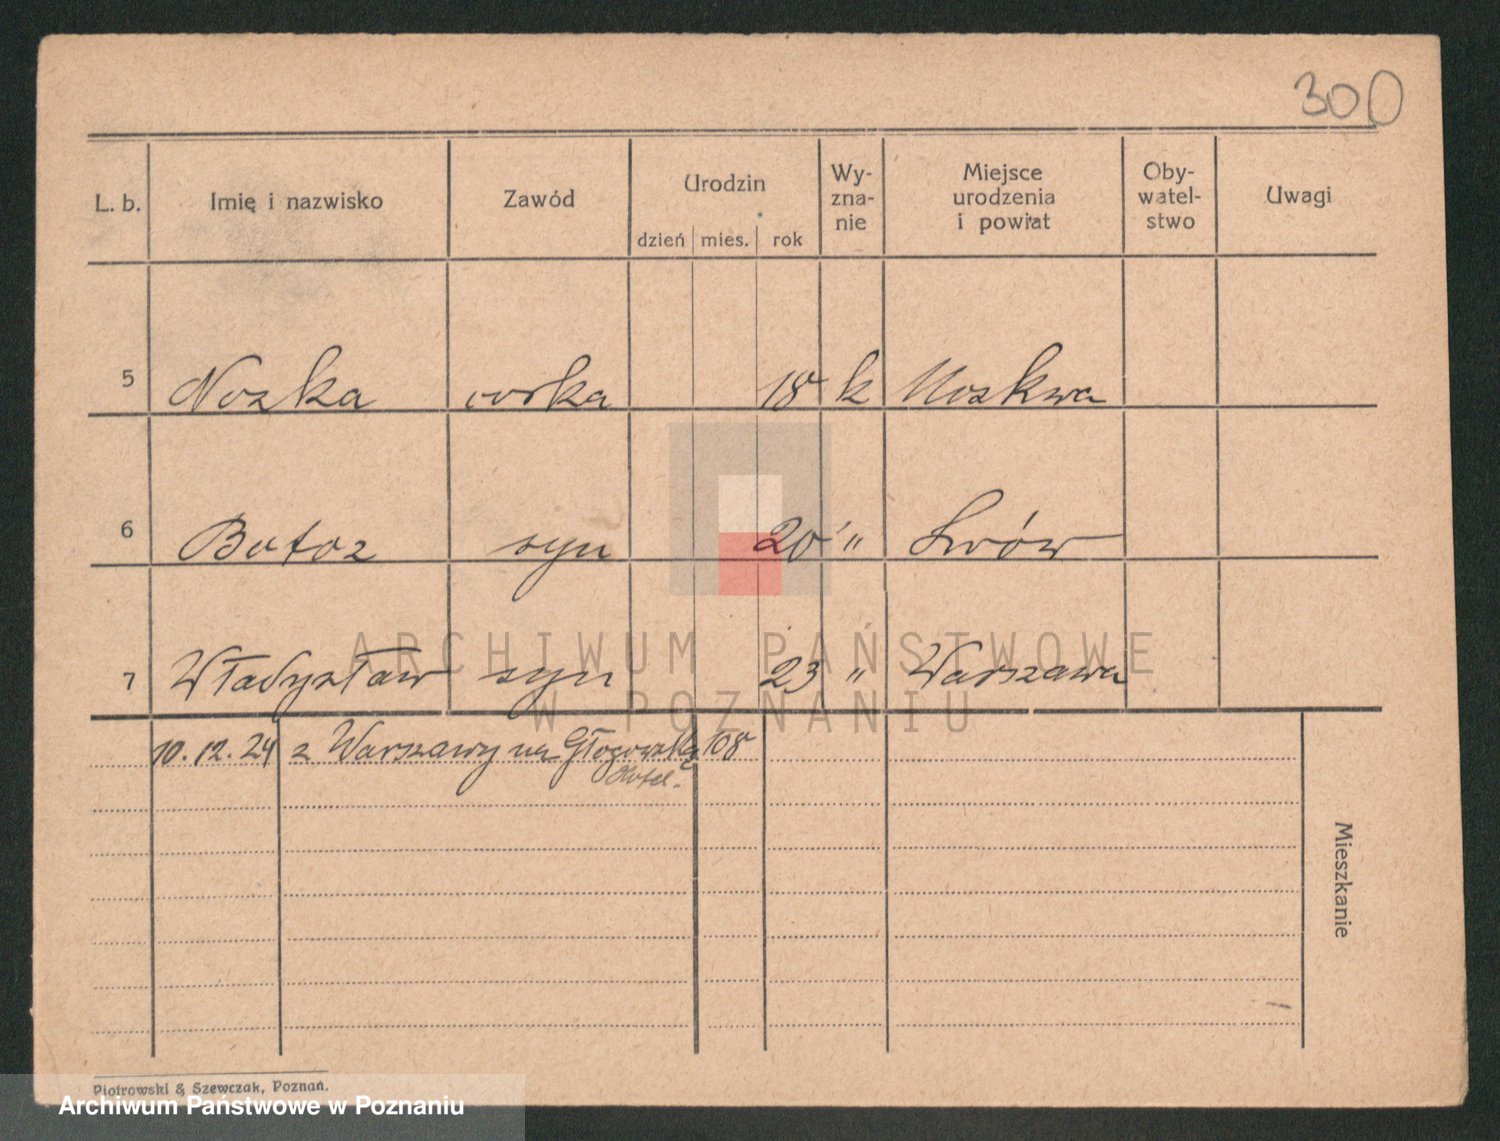 300
L. b. Imię i nazwisko Zawód Urodzin Wy-zna-nie Miejsce urodzenia i powiat Oby-watel-stwo Uwagi
dzień mies. rok
5 Nozka corka 18 k Moskwa
6 Botoz syn 20 " Lwów
7 Władysław syn 23 " Warszawa
10.12.24 z Warszawy na Głogowską 108
Hotel.
Mieszkanie
Piotrowski & Szewczak, Poznań.
ARCHIWUM PAŃSTWOWE
W POZNANIU
Archiwum Państwowe w Poznaniu